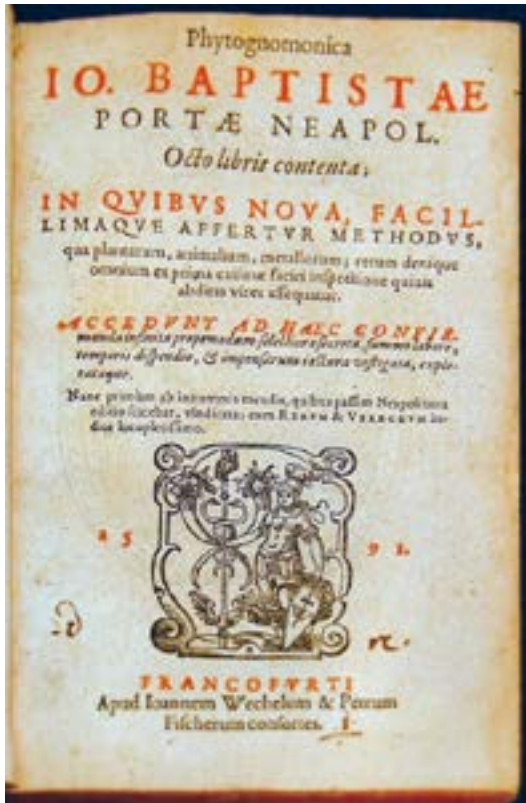 Phytognomonica
IO. BAPTISTAE
PORTÆ NEAPOL.
Octo libris contenta;
IN QVIBVS NOVA, FACIL-
LIMAQVE AFFERTVR METHODVS,
qua plantarum, animalium, metallorum; rerum denique
omnium ex prima extimæ faciei inspectione quiuis
abditas vires assequatur.
ACCEDVNT AD HAEC CONFIR-
manda infinita propemodum selectiora secreta, summo labore,
temporis dispendio, & impensarum iactura vestigata, explo-
rataque.
Nunc primùm ab innumeris mendis, quibus passim Neapolitana
editio scatebat, vindicata; cum RERVM & VERBORVM In-
dice locupletissimo.
15 91.
FRANCOFVRTI
Apud Ioannem Wechelum & Petrum
Fischerum consortes.